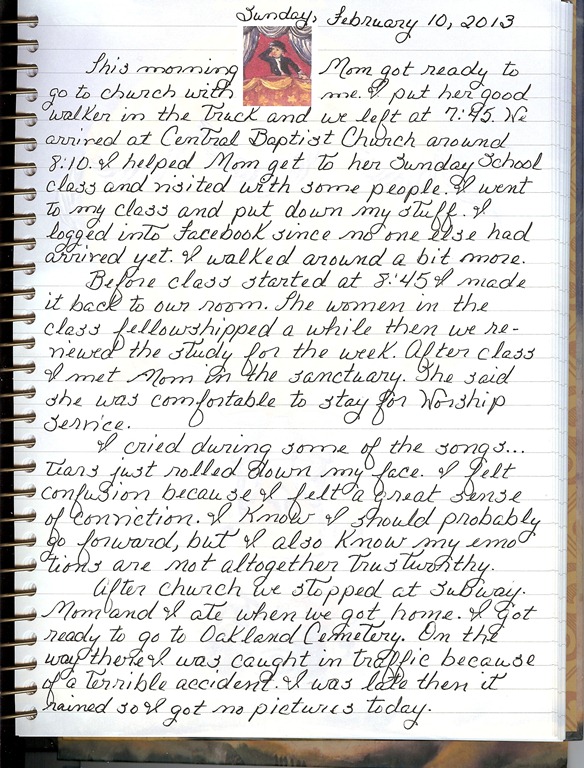 Sunday, February 10, 2013
This morning Mom got ready to
go to church with me. I put her good
walker in the truck and we left at 7:45. We
arrived at Central Baptist Church around
8:10. I helped Mom get to her Sunday School
class and visited with some people. I went
to my class and put down my stuff. I
logged into Facebook since no one else had
arrived yet. I walked around a bit more.
Before class started at 8:45 I made
it back to our room. The women in the
class fellowshipped a while then we re-
viewed the study for the week. After class
I met Mom in the sanctuary. She said
she was comfortable to stay for Worship
Service.
I cried during some of the songs...
Tears just rolled down my face. I felt
confusion because I felt a great sense
of conviction. I know I should probably
go forward, but I also know my emo
tions are not altogether trustworthy.
After church we stopped at Subway.
Mom and I ate when we got home. I got
ready to go to Oakland Cemetery. On the
way there I was caught in traffic because
of a terrible accident. I was late then it
rained so I got no pictures today.